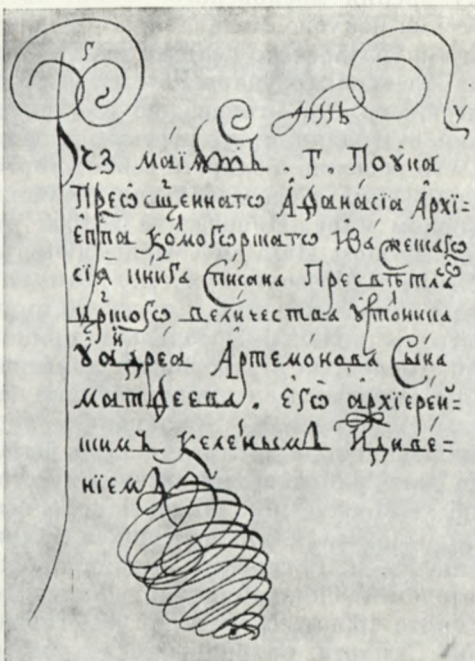 маїѧ . Г҃ . По ᲂука
Преѡсщеннагѡ Аѳанасїа Архї=
еп҃па Колмогорскагѡ И важескагѡ
сїѧ книга Списана Пресвѣтла
цр҃скогѡ величества ᲂу столника
ᲂу андреа Артемонова Сына
матѳеева . Егѡ архїерей=
скимъ келейнымъ Иждиве=
нїемъ